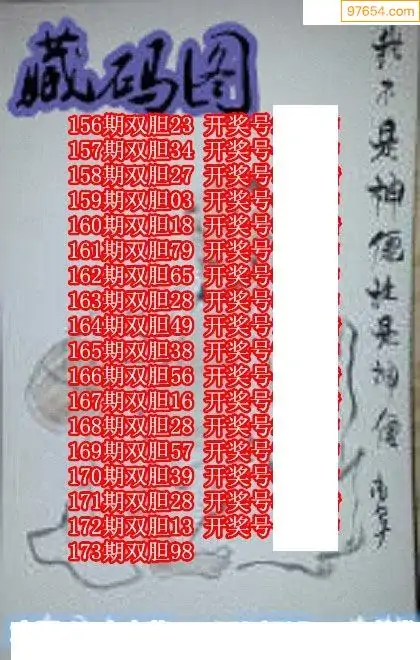 97654.com
藏码图
156期双胆23 开奖号
157期双胆34 开奖号
158期双胆27 开奖号
159期双胆03 开奖号
160期双胆18 开奖号
161期双胆79 开奖号
162期双胆65 开奖号
163期双胆28 开奖号
164期双胆49 开奖号
165期双胆38 开奖号
166期双胆56 开奖号
167期双胆16 开奖号
168期双胆28 开奖号
169期双胆57 开奖号
170期双胆39 开奖号
171期双胆28 开奖号
172期双胆13 开奖号
173期双胆98
我不是神僊就是神僊